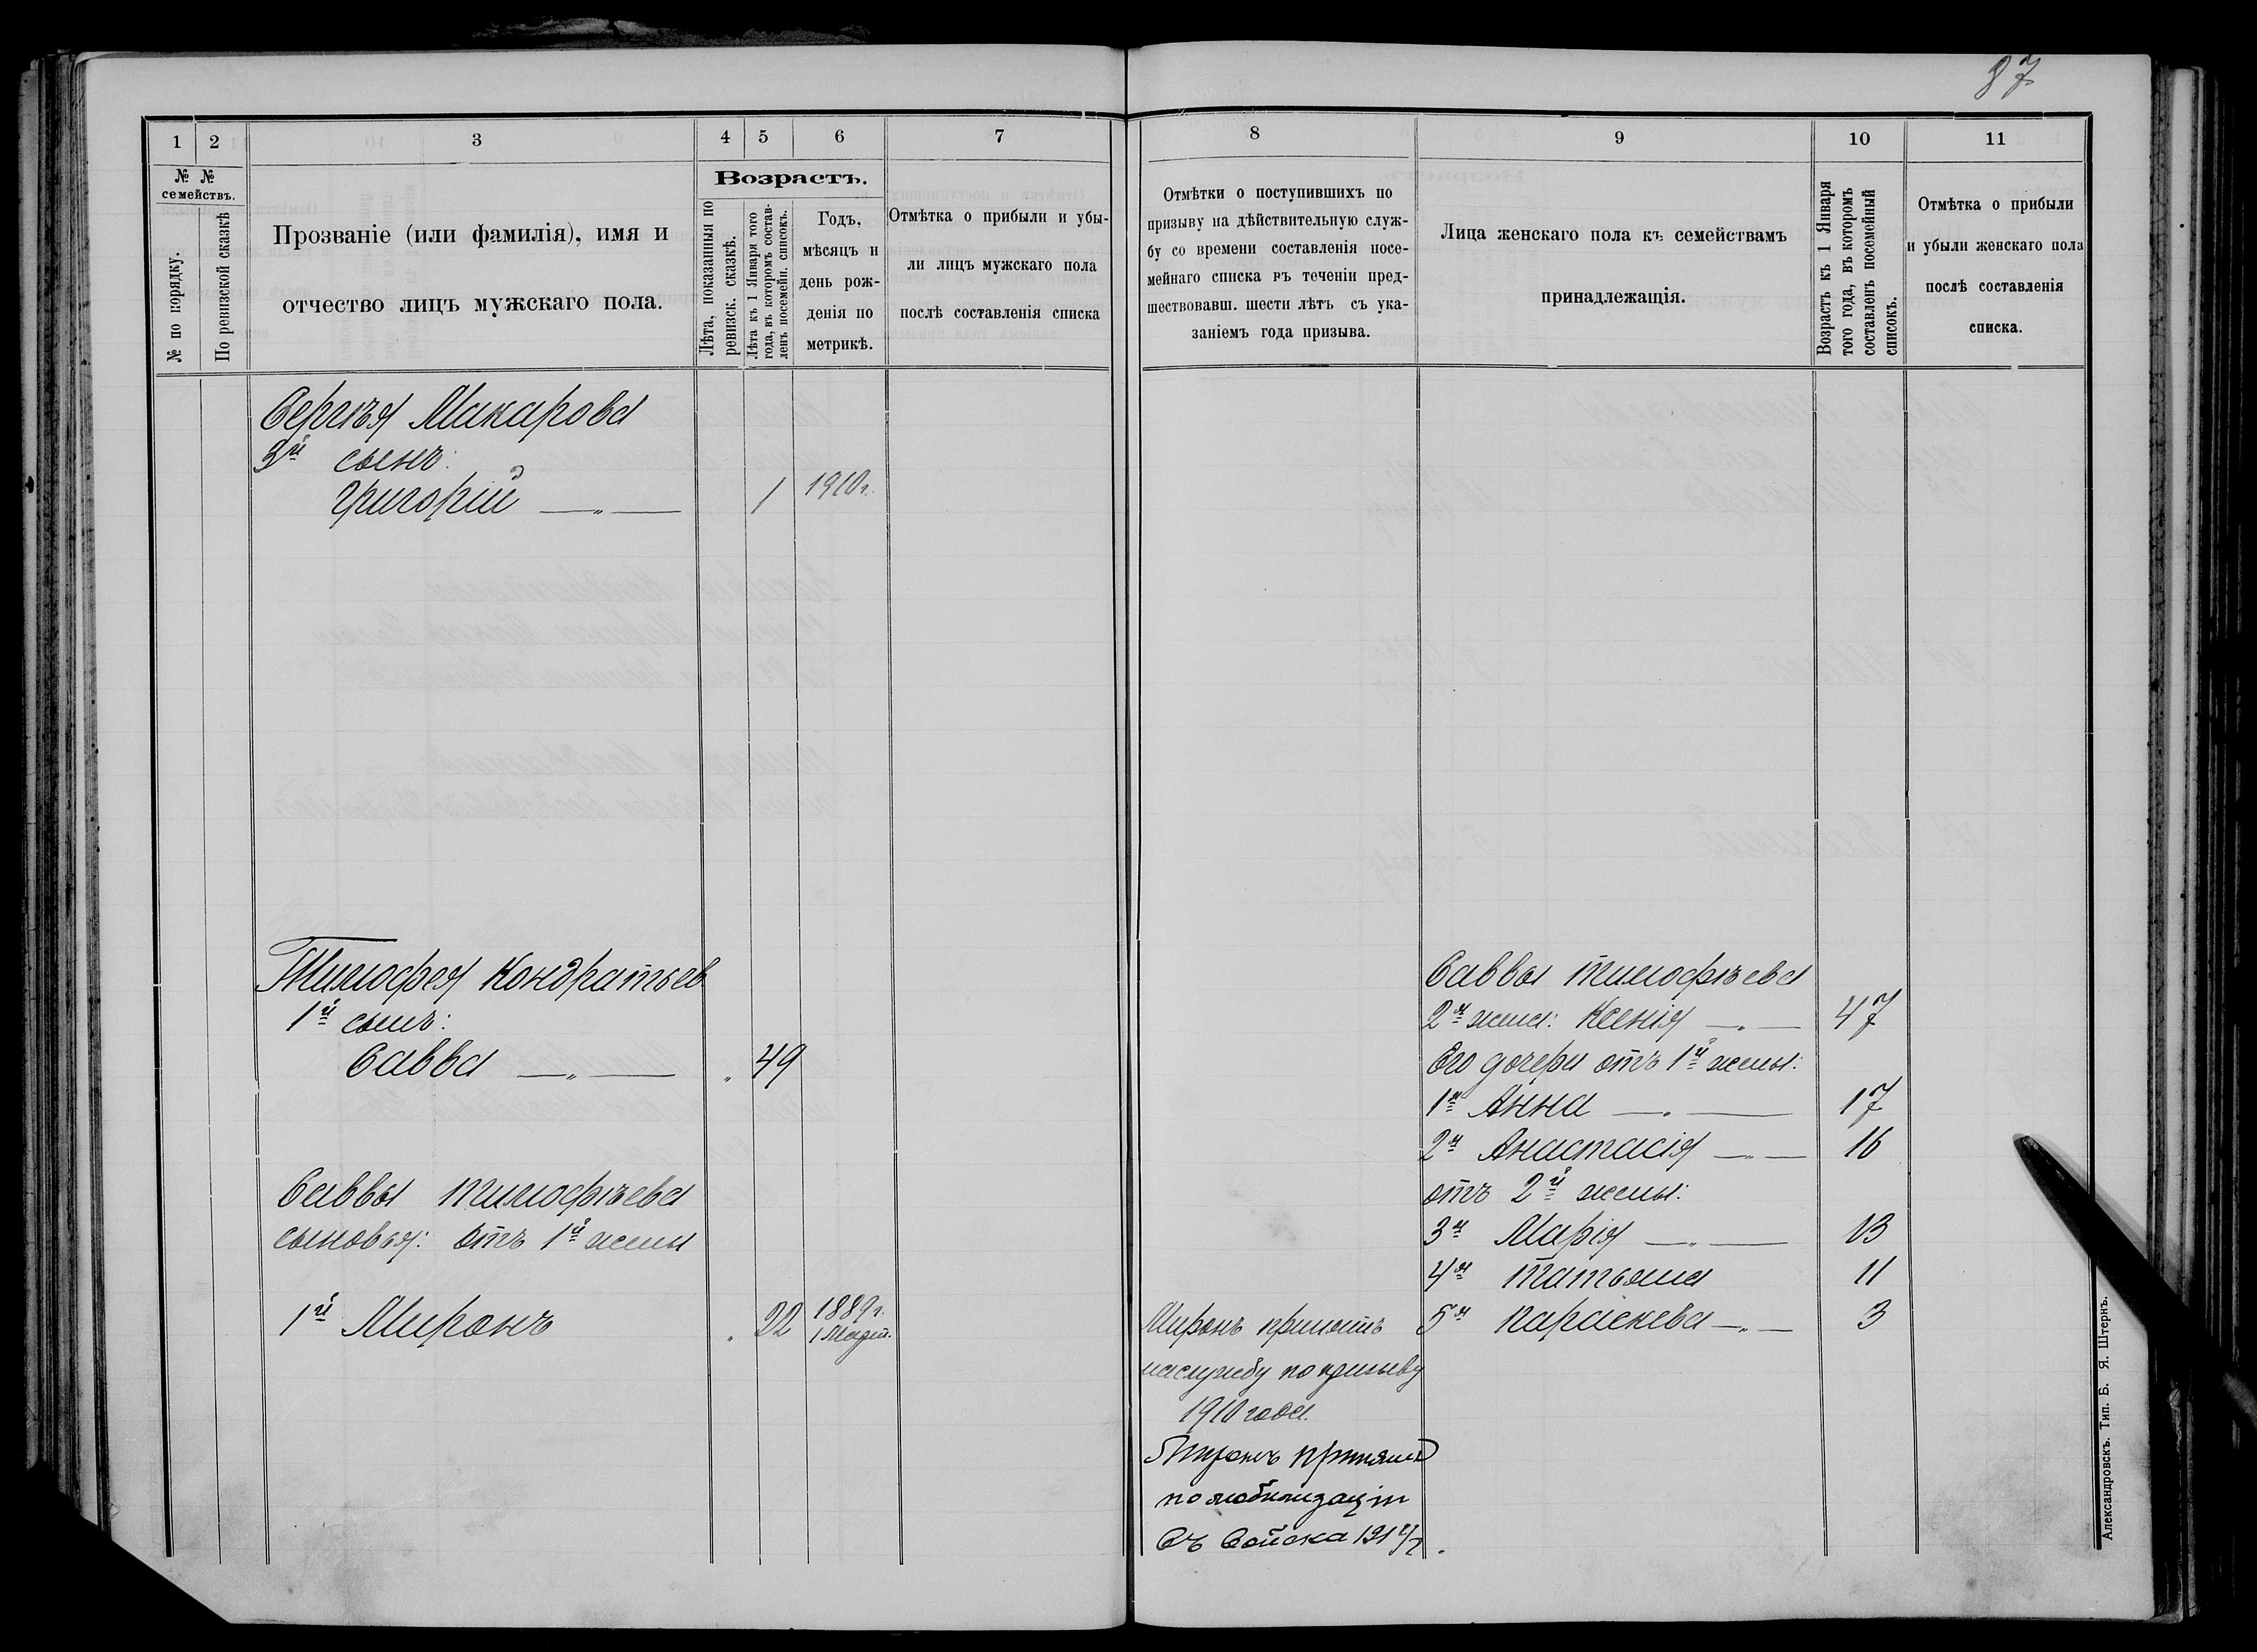 87
1 2 3 4 5 6 7
№ №
семействъ.
№ по порядку.
По ревизской сказкѣ
Прозваніе (или фамилія), имя и
отчество лицъ мужскаго пола.
Возрастъ.
Лѣта, показанныя по
ревизск. сказкѣ.
Лѣта къ 1 Января того
года, въ которомъ состав-
ленъ посемейн. списокъ.
Годъ,
мѣсяцъ и
день рож-
денія по
метрикѣ.
Отмѣтка о прибыли и убы-
ли лицъ мужскаго пола
послѣ составленія списка
Сергѣя Макарова
3й сынъ:
Григорій —„— 1 1910г.
Тимофея Кондратьев
1й сынъ:
Савва —„— „ 49
Саввы Тимофѣева
сыновья: отъ 1й жены
1й Миронъ „ 22 1889г.
1 Март.
8 9 10 11
Отмѣтки о поступившихъ по
призыву на дѣйствительную служ-
бу со времени составленія посе-
мейнаго списка въ теченіи пред-
шествовавш. шести лѣтъ съ ука-
заніемъ года призыва.
Лица женскаго пола къ семействамъ
принадлежащія.
Возрастъ къ 1 Января
того года, въ которомъ
составленъ посемейный
списокъ.
Отмѣтка о прибыли
и убыли женскаго пола
послѣ составленія
списка.
Саввы Тимофѣева
2я жена: Ксенія —„— 47
Его дочери отъ 1й жены:
1я Анна —„— 17
2я Анастасія —„— 16
отъ 2й жены:
3я Марія —„— 13
4я Татьяна 11
5я Параскева —„— 3
Миронъ принятъ
на службу по призыву
1910 года.
Миронъ принятъ
по мобилизаціи
Съ Войска
Александровскъ. Тип. Б. Я. Штернъ.